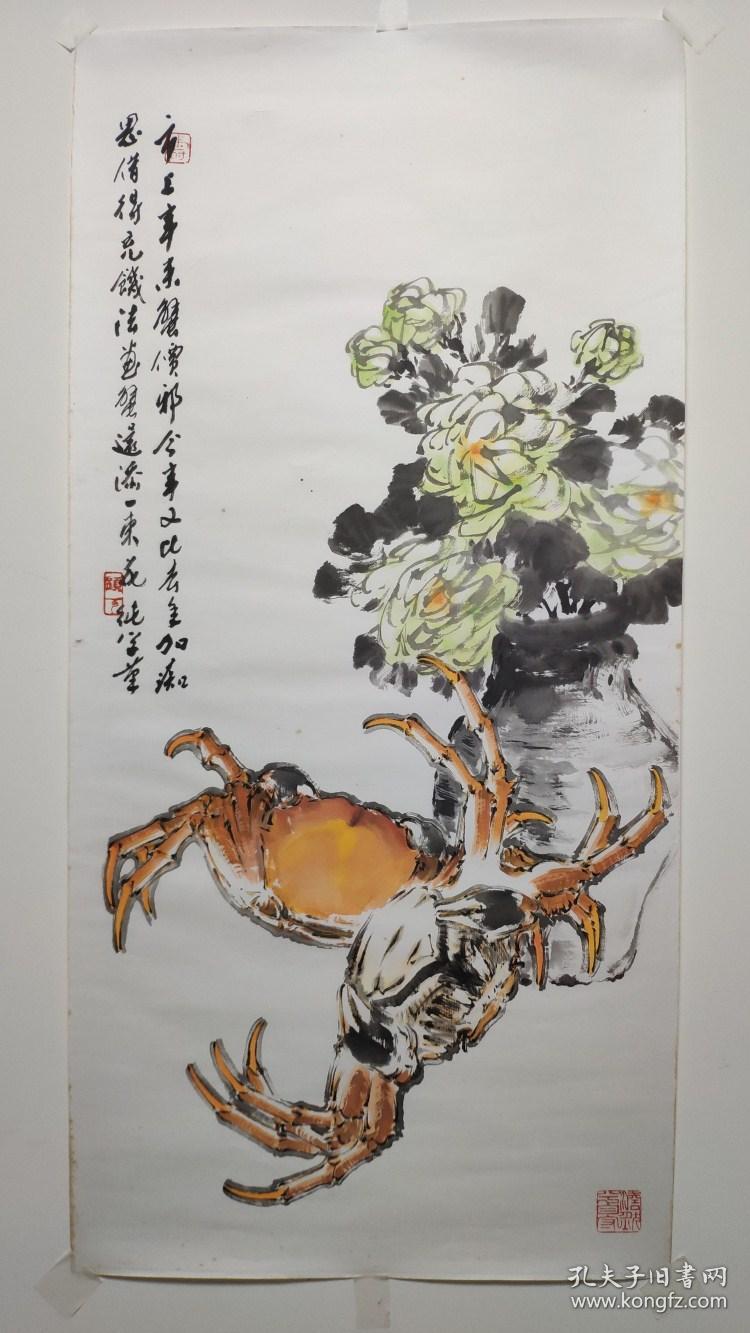 市上年来蟹價邪今年又比去年加
思借得充饑法畫蟹還添一束花純学筆
孔夫子旧書网
www.kongfz.com